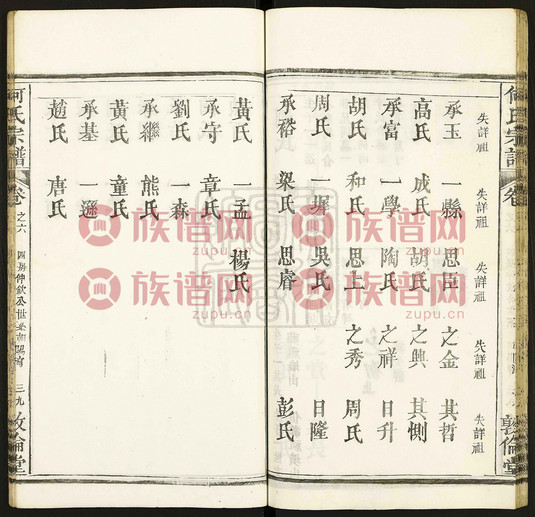 何氏宗譜
卷
敦倫堂
失詳祖 失詳祖 失詳祖 失詳祖 失詳祖
承玉 一縣 思臣 之金 其哲
高氏 成氏 胡氏 之興 其惻
承富 一學 陶氏 之祥 日升
胡氏 和氏 思上 之秀 周氏
周氏 一墀 吳氏 日隆
承裕 梁氏 思睿 彭氏
黃氏 一孟 楊氏
承守 章氏
劉氏 一森
承繼 熊氏
黃氏 童氏
承基 一遜
趙氏 唐氏
何氏宗譜
卷之六
三九
敦倫堂
族谱网
zupu.cn
族谱网
zupu.cn
族谱网
zupu.cn
族谱网
zupu.cn